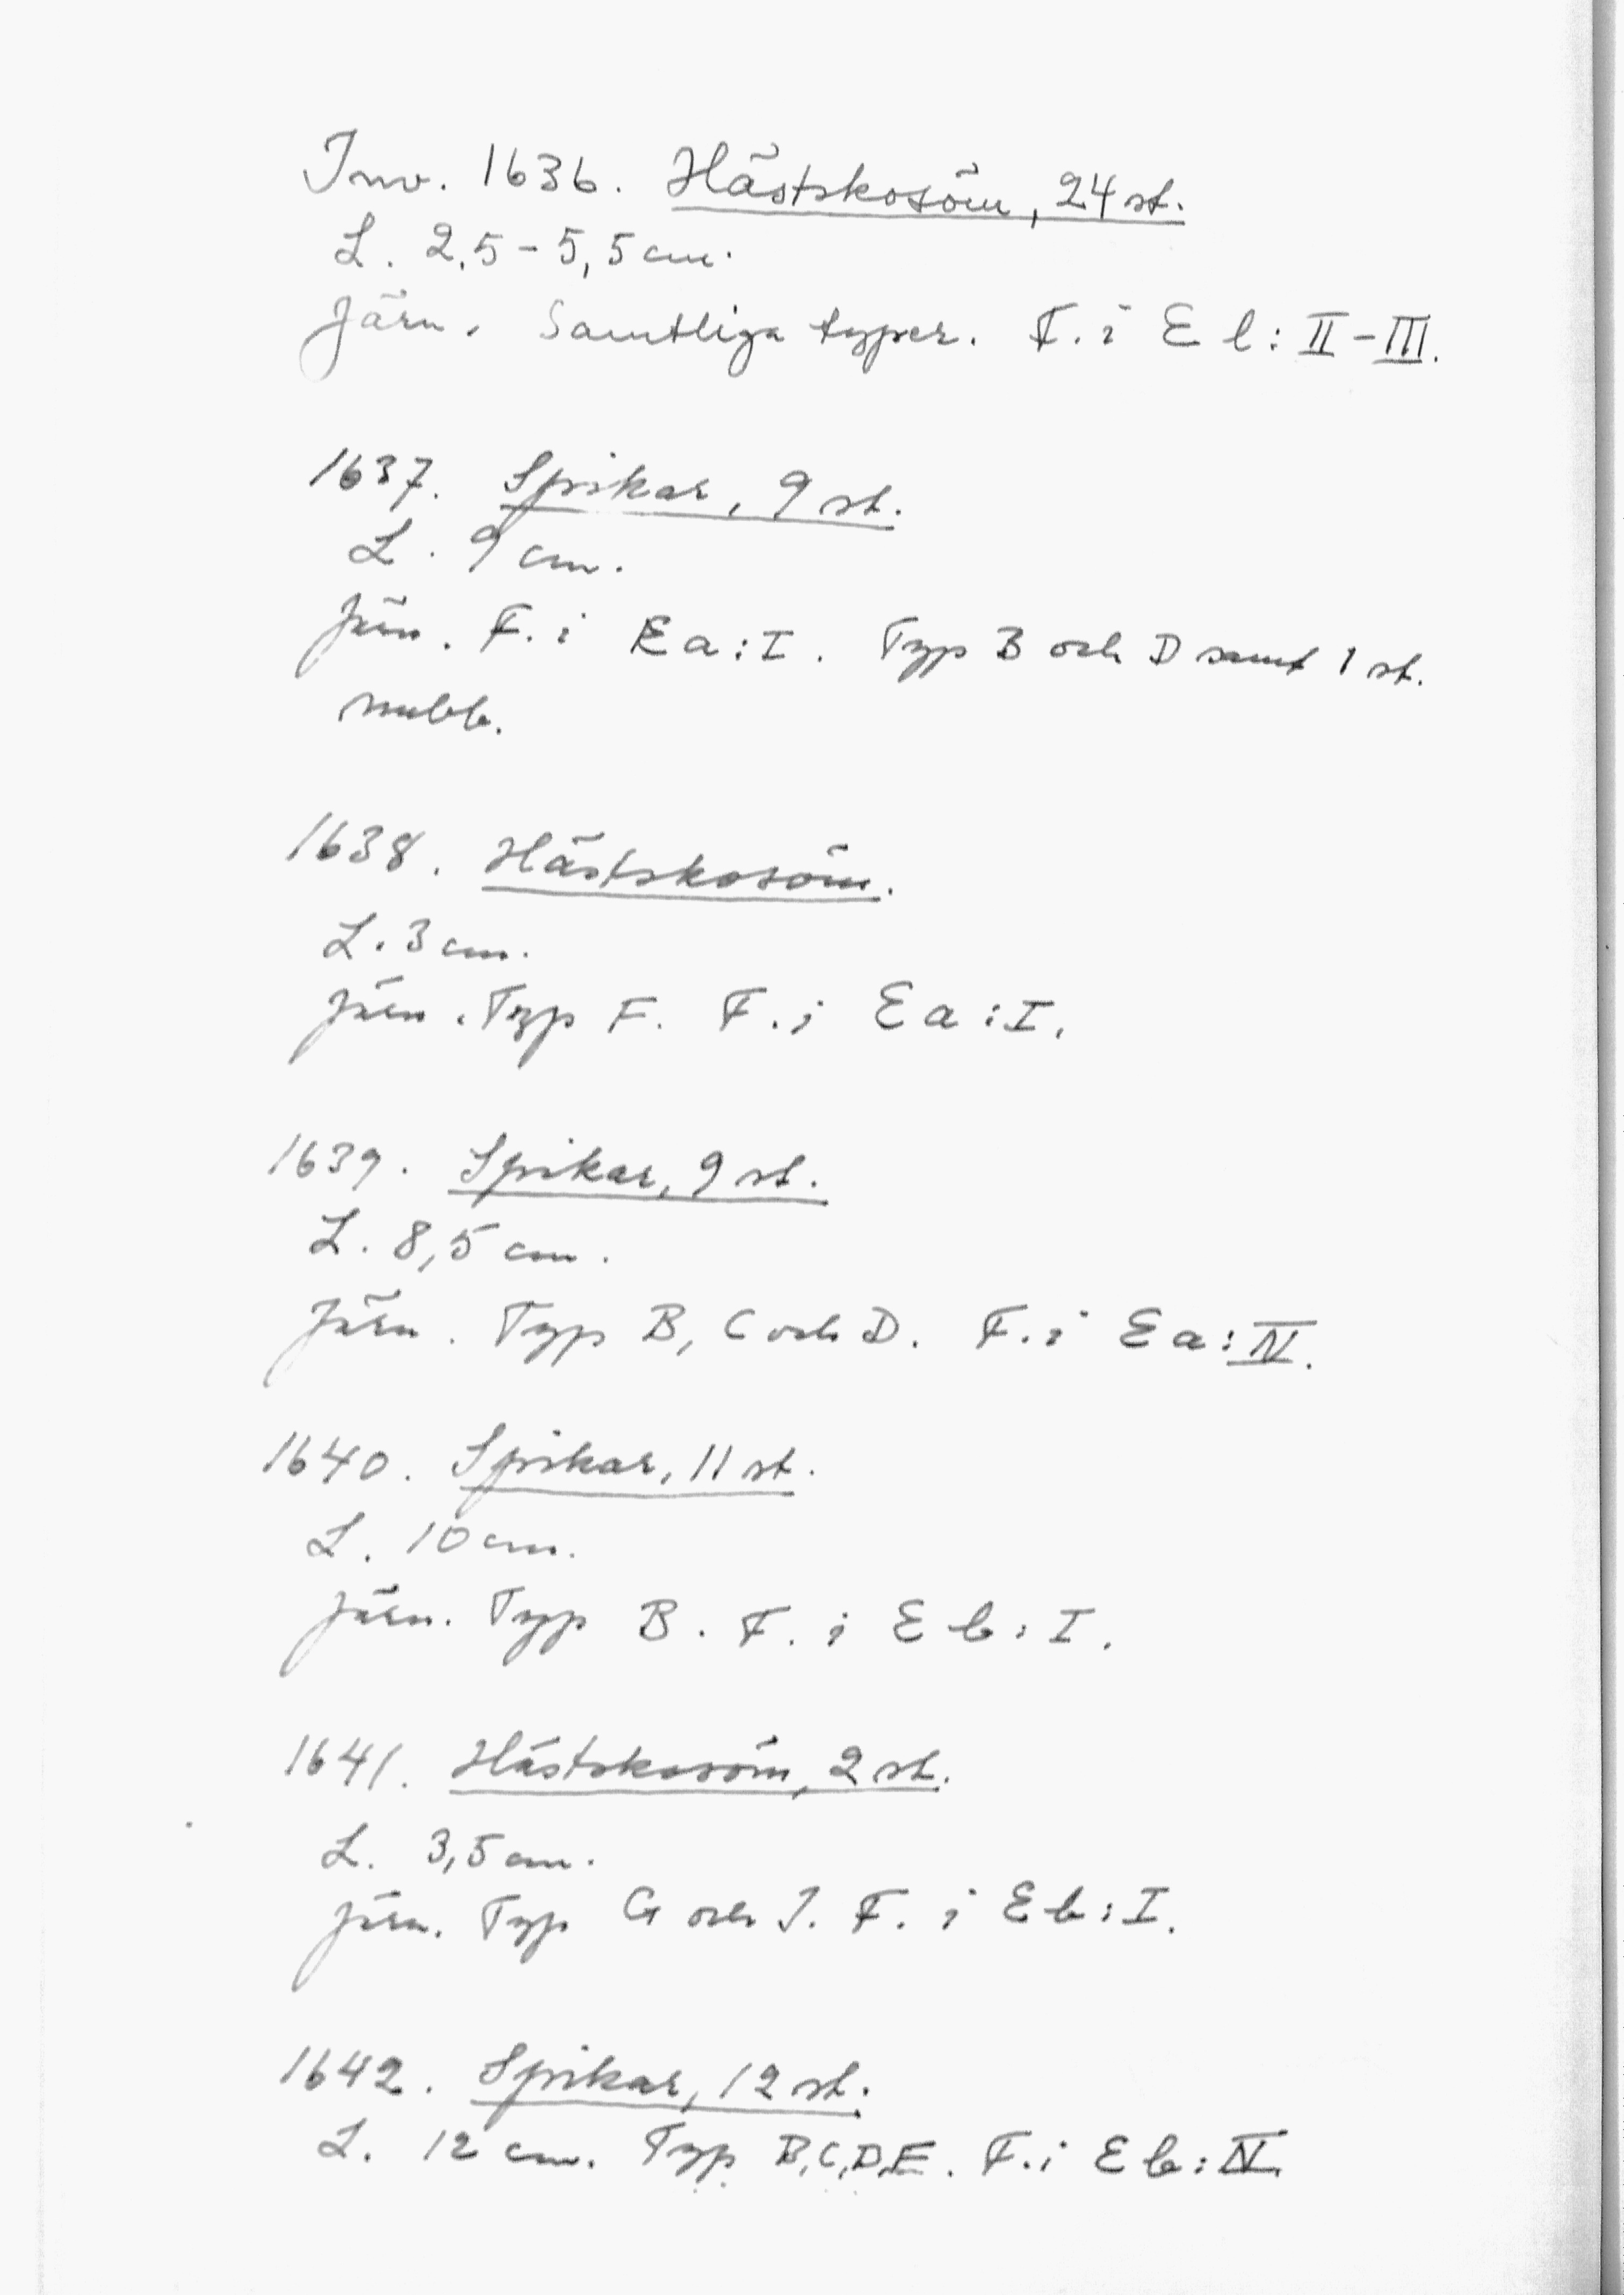 Inv. 1636. Hästskosöm, 24 st.
L. 2,5-5,5 cm.
Järn. Samtliga typer. F. i E l: II-III.
1637. Spikar, 9 st.
L. 9 cm.
Järn. F. i E a: I. Typ B och D samt 1 st.
nubb.
1638. Hästskosöm.
L. 3 cm.
Järn. Typ F. F. i E a: I.
1639. Spikar, 9 st.
L. 8,5 cm.
Järn. Typ B, C och D. F. i E a: IV.
1640. Spikar, 11 st.
L. 10 cm.
Järn. Typ B. F. i E b: I.
1641. Hästskosöm, 2 st.
L. 3,5 cm.
Järn. Typ G och J. F. i E b: I.
1642. Spikar, 12 st.
L. 12 cm. Typ B, C, D, E. F. i E b: IV.